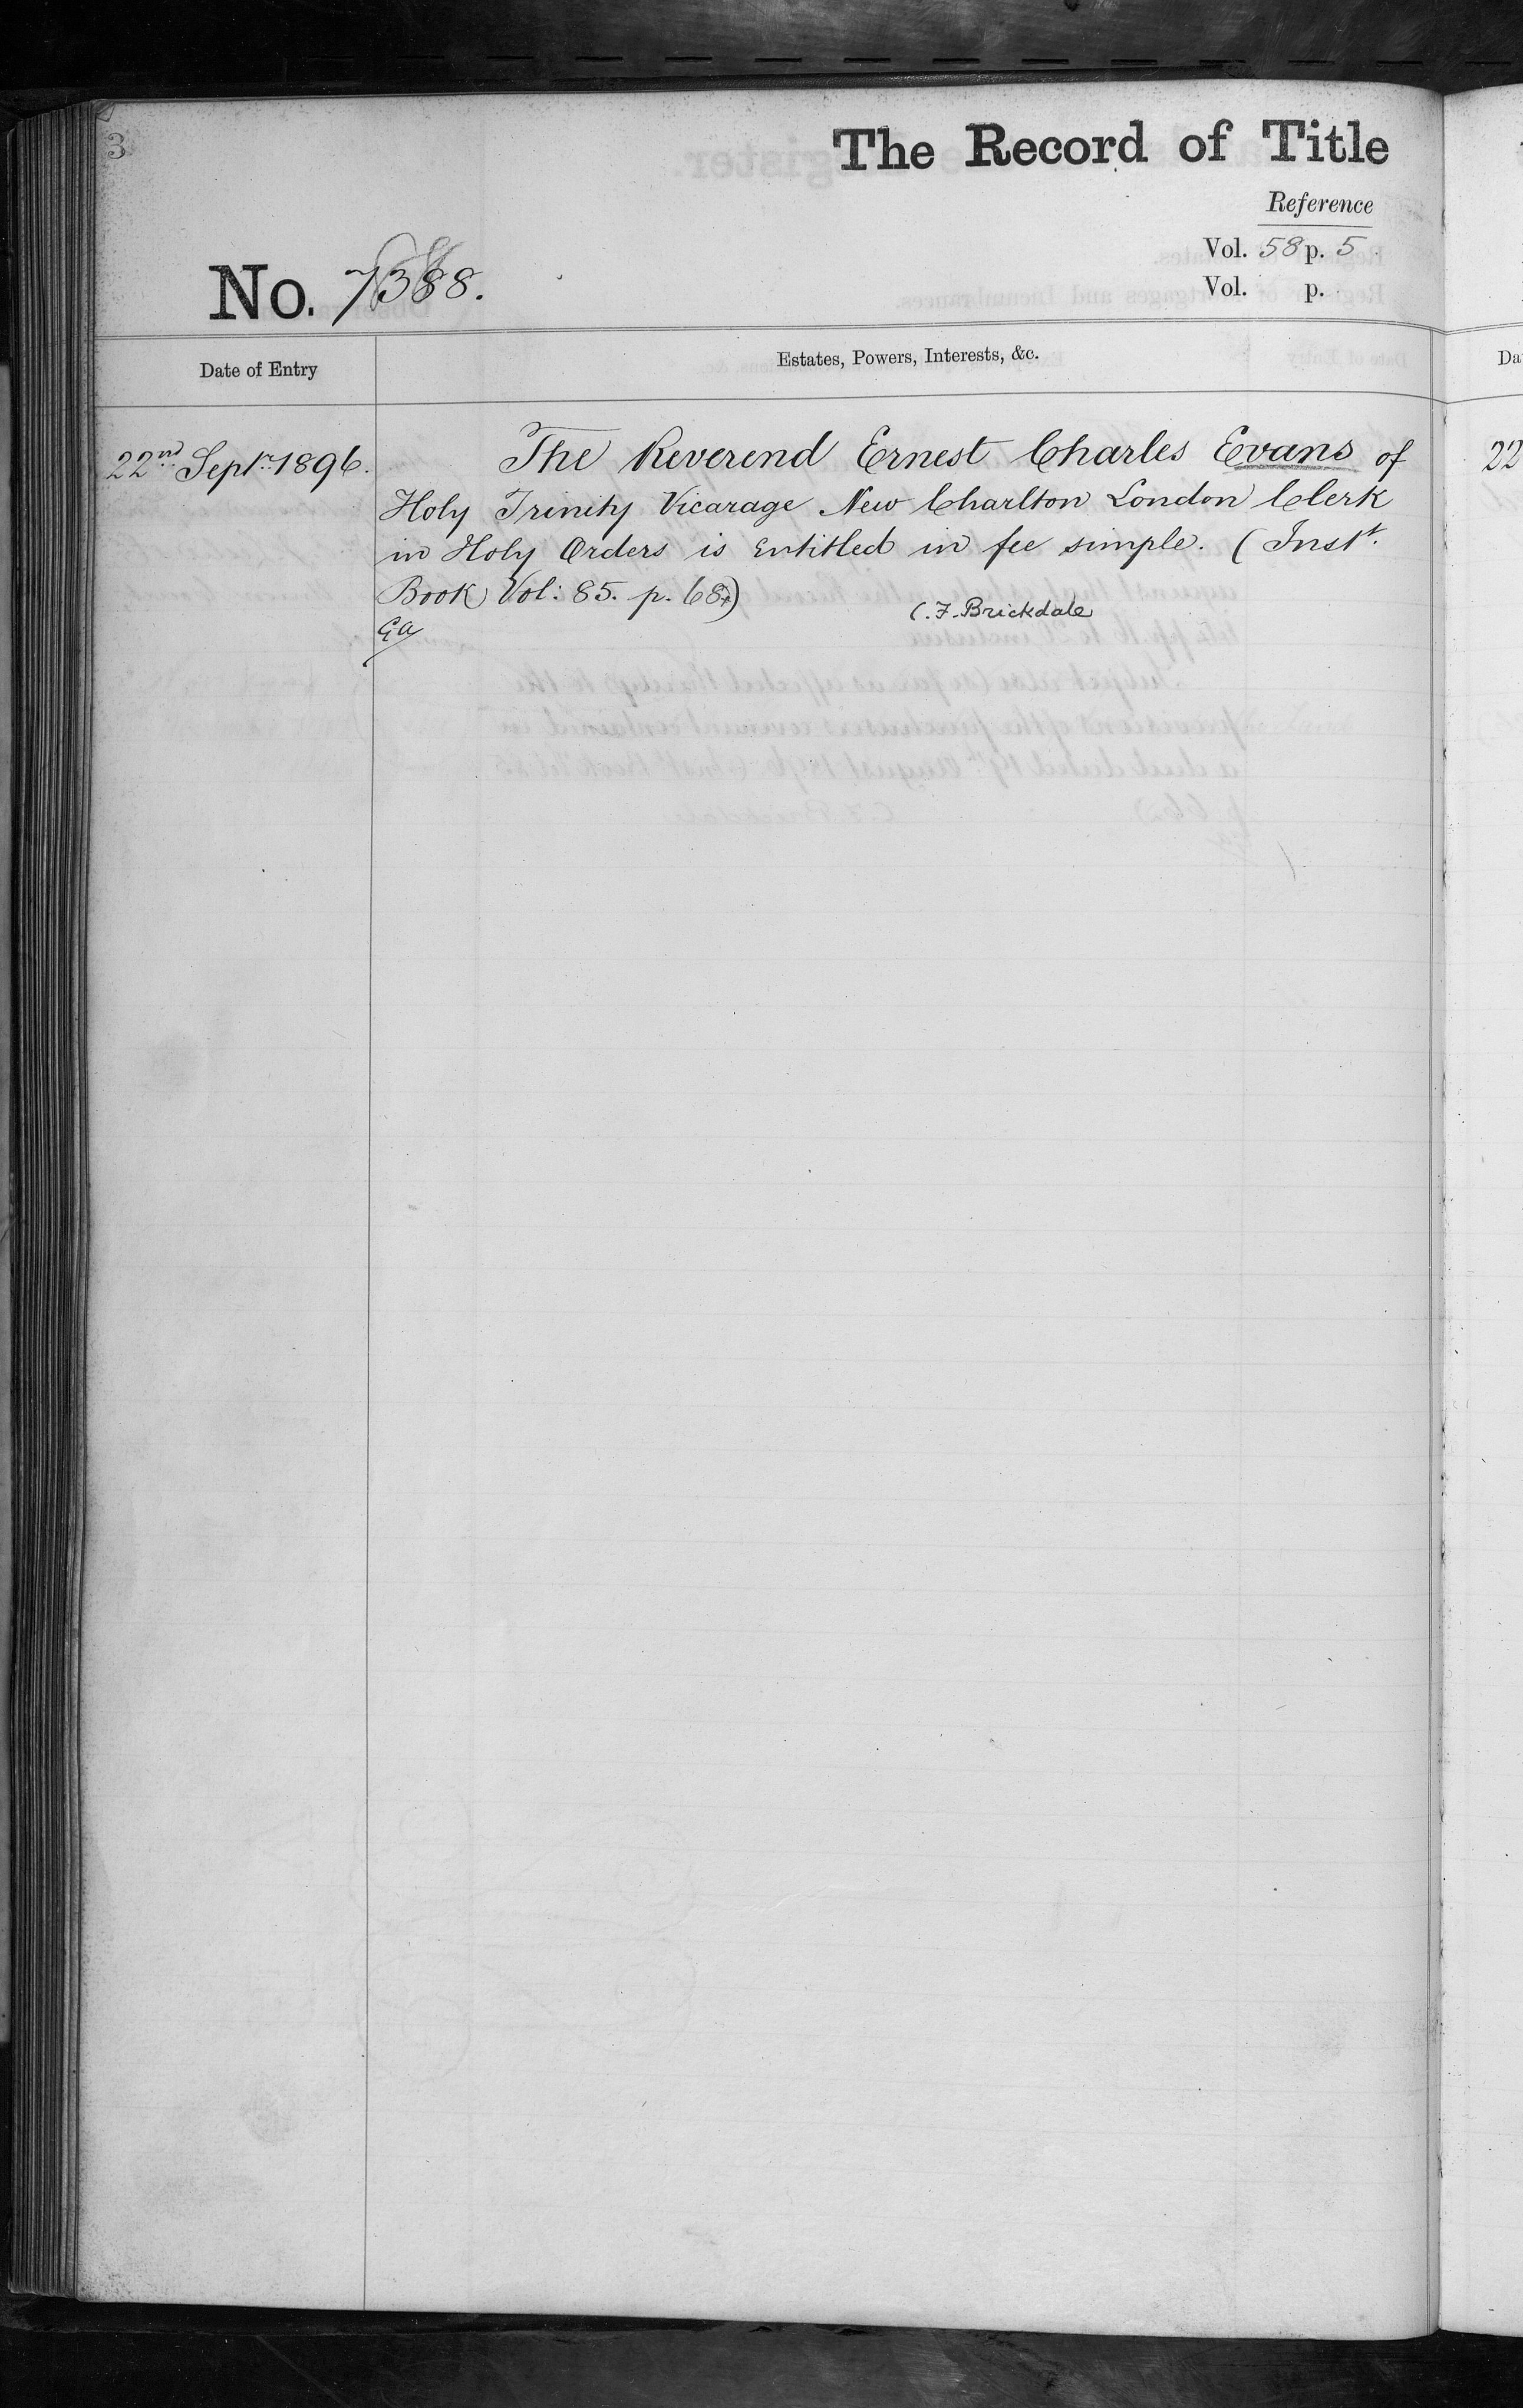 3
The Record of Title
Reference
Vol. 58 p. 5.
Vol. p.
No. 7388.
Date of Entry
Estates, Powers, Interests, &c.
22nd Septr. 1896.
The Reverend Ernest Charles Evans of
Holy Trinity Vicarage New Charlton London Clerk
in Holy Orders is entitled in fee simple. (Instt.
Book Vol: 85. p. 68)
C. F. Brickdale
Ga
Da
22